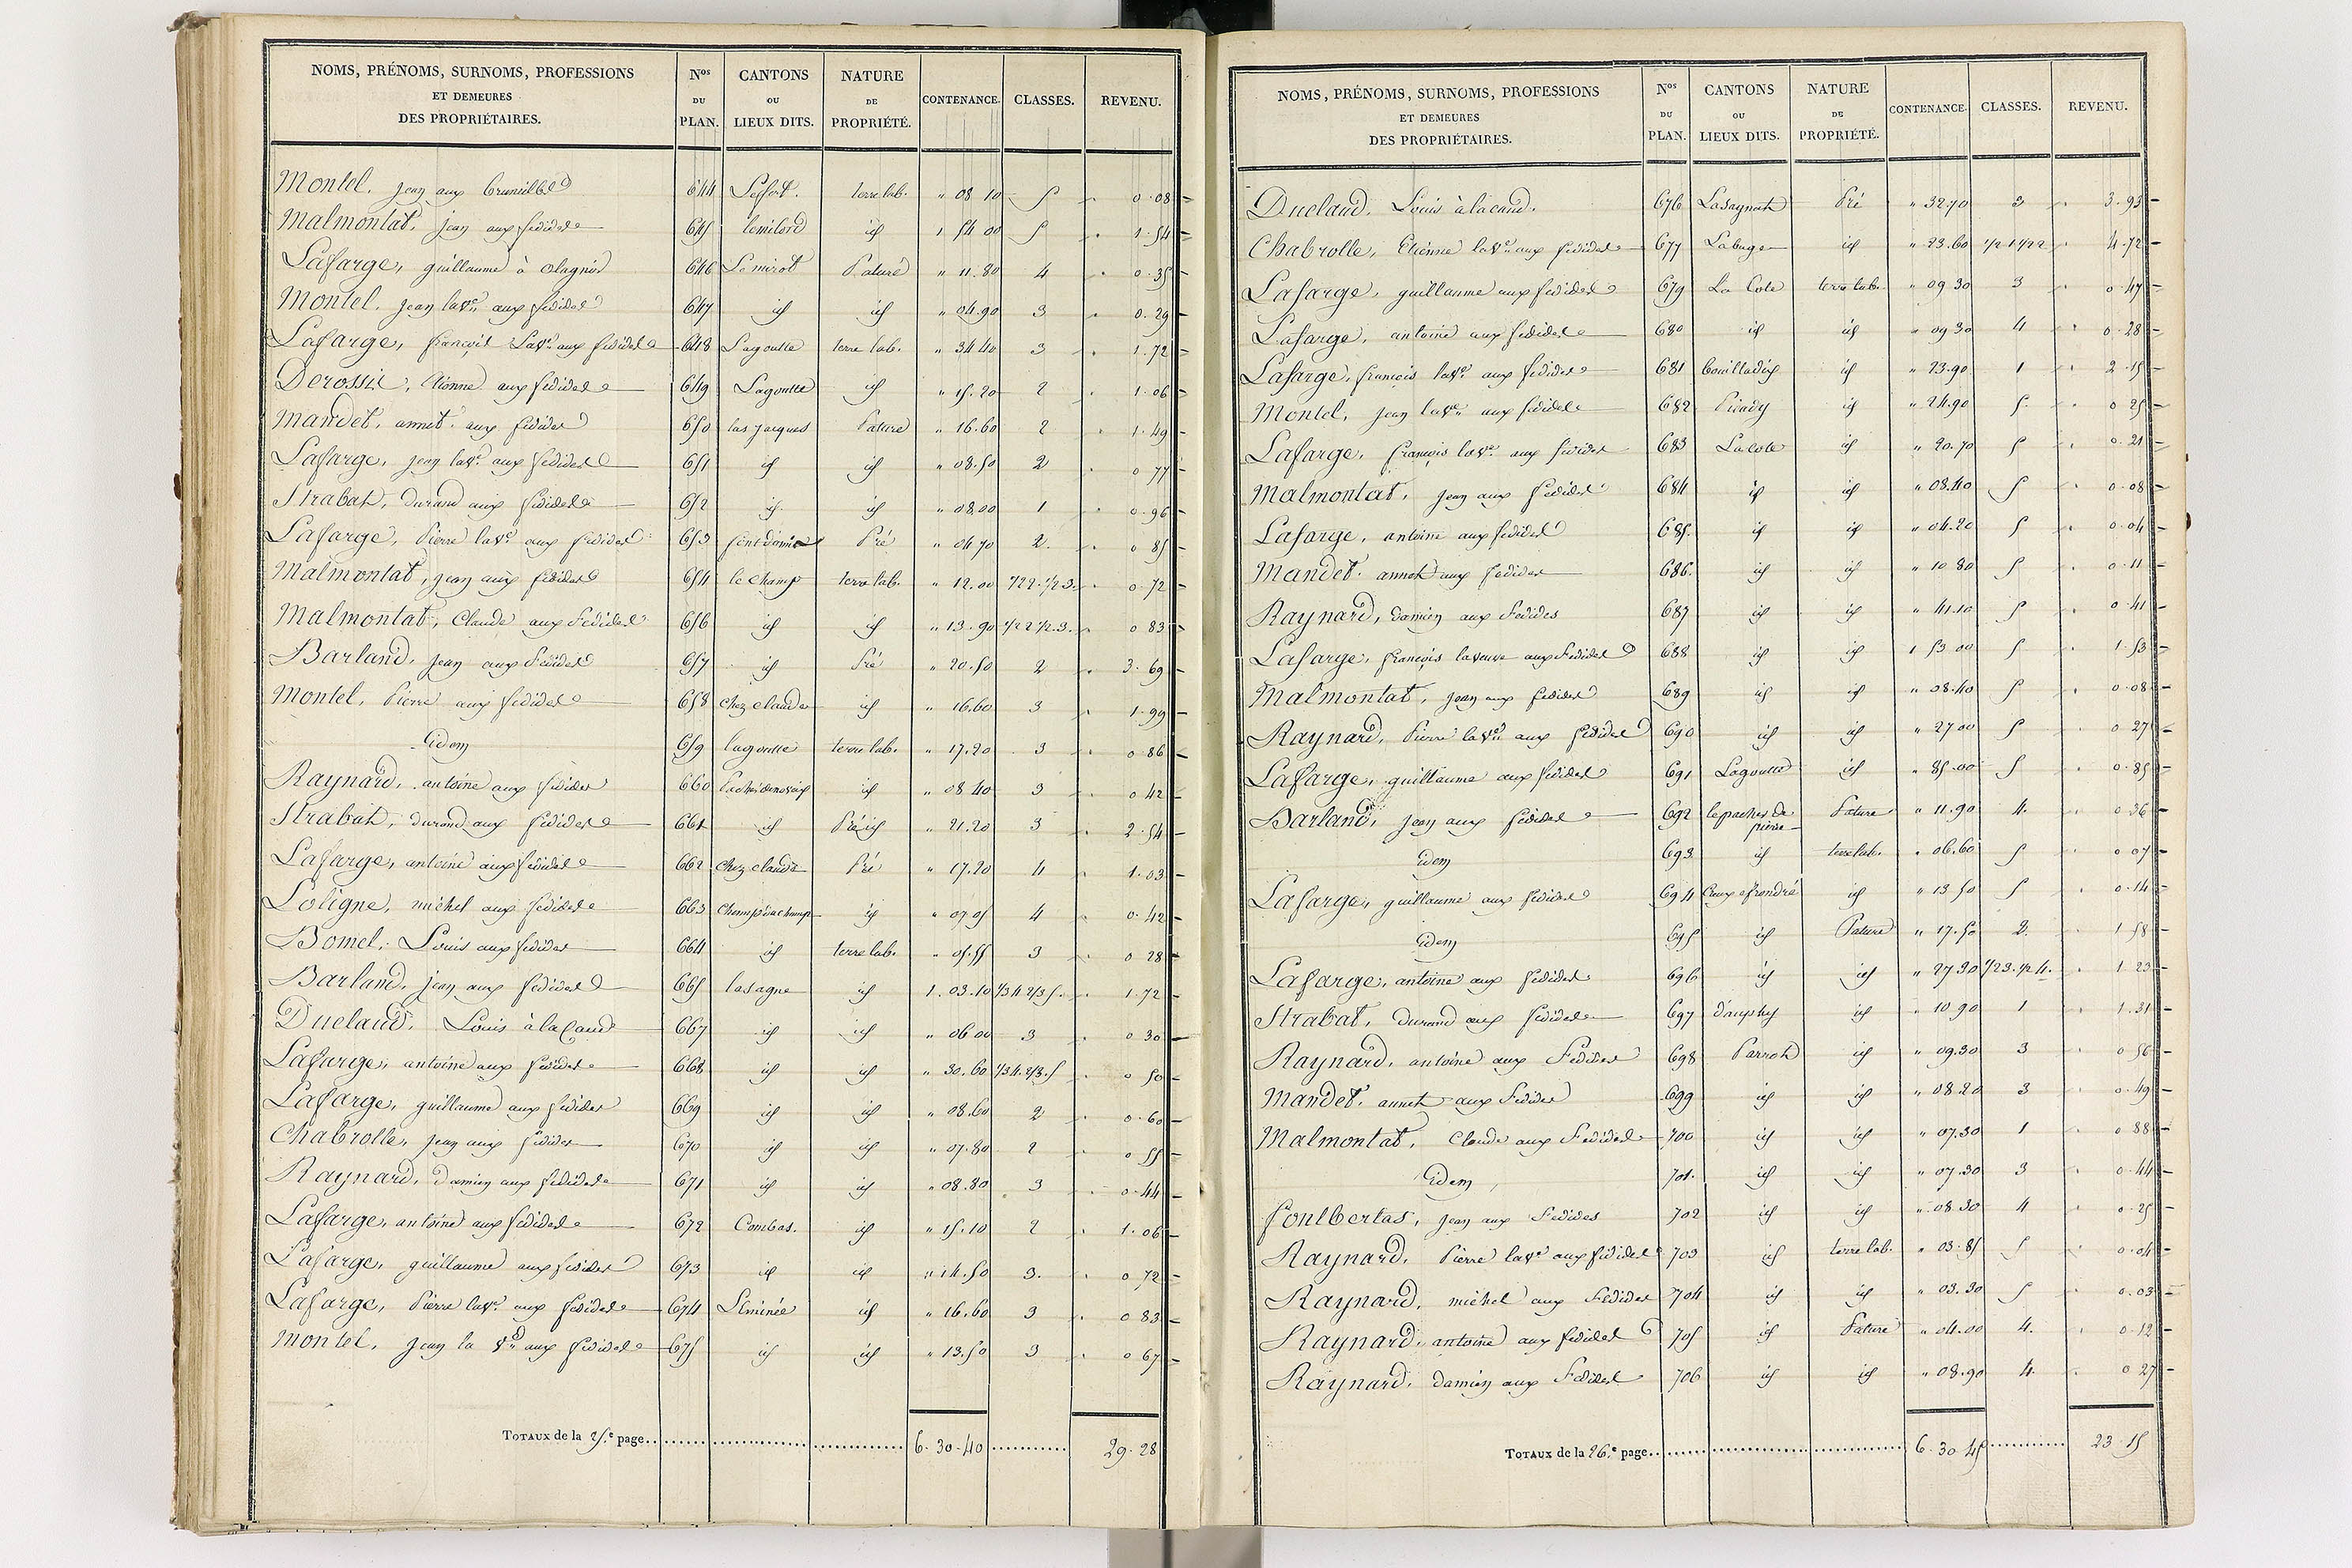 NOMS, PRÉNOMS, SURNOMS, PROFESSIONS ET DEMEURES DES PROPRIÉTAIRES. Nos DU PLAN. CANTONS OU LIEUX DITS. NATURE DE PROPRIÉTÉ. CONTENANCE. CLASSES. REVENU.
Montel, jean aux 644 terre lab. " 08 10 5 0.08
Malmontat, jean aux fedides 645 id 1 54 00 5 1.54
Lafarge, guillaume à olagnier 646 Pature " 11.80 4 0.35
Montel, jean la ve aux fedides 647 id id " 04.90 3 0.29
Lafarge, françois La ve aux fedides 648 Lagoutte terre lab. " 34 40 3 1.72
Derossis, etienne aux fedides 649 Lagoutte id " 15.20 2 1.06
Mandet, annet aux fedides 650 las jacques Pature " 16.60 2 1.49
Lafarge, jean la ve aux fedides 651 id id " 08.50 2 0 77
Strabat, durand aux fedides 652 id id " 08.00 1 0.96
Lafarge, Pierre la ve aux fedides 653 Pré " 04 70 2. 0 85
Malmontat, jean aux fedides 654 le champ terre lab. " 12.00 1/2 2. 1/2 3. 0 72
Malmontat, Claude aux Fedides 656 id id " 13.90 1/2 2 1/2.3. 0 83
Barland, jean aux Fedides 657 id Pré " 20.50 2 3.69
Montel, Pierre aux fedides 658 chez claude id " 16.60 3 1.99
Idem 659 lagoutte terre lab. " 17.20 3 0.86
Raynard, antoine aux fedides 660 id " 08 40 3 0 42
Strabat, durand aux fedides 661 id Pré id " 21.20 3 2.54
Lafarge, antoine aux fedides 662 chez claude Pré " 17.20 4 1.03
Loligne, michel aux fedides 663 id " 07.05 4 0.42
Bomel, Louis aux fedides 664 id terre lab. " 05.55 3 0 28
Barland, jean aux fedides 665 lasagne id 1.03.10 1/3 4 2/3 5. 1.72
Duclaud, Louis à la Caud 667 id id " 06 00 3 0 30
Lafarge, antoine aux fedides 668 id id " 30.60 1/3 4. 2/3. 5 0 50
Lafarge, guillaume aux fedides 669 id id " 08.60 2 0.60
Chabrolle, jean aux fedides 670 id id " 07.80 2 0 55
Raynard, damien aux fedides 671 id id " 08.80 3 0.44
Lafarge, antoine aux fedides 672 Combas. id " 15.10 2 1.06
Lafarge, guillaume aux fedides 673 id id " 14.50 3. 0 72
Lafarge, Pierre la ve aux fedides 674 Leminée id " 16.60 3 0 83
Montel, jean la ve aux fedides 675 id id " 13.50 3 0 67
TOTAUX de la 25.e page 6.30.40 29.28
NOMS, PRÉNOMS, SURNOMS, PROFESSIONS ET DEMEURES DES PROPRIÉTAIRES. Nos DU PLAN. CANTONS OU LIEUX DITS. NATURE DE PROPRIÉTÉ. CONTENANCE. CLASSES. REVENU.
Duclaud, Louis à la caud. 676 Lasagnat Pré " 32.70 3 3.93
Chabrolle, Etienne la ve aux fedides 677 id " 23.60 4.72
Lafarge, guillaume aux fedides 679 La Cote terre lab. " 09 30 3 0.47
Lafarge, antoine aux fedides 680 id id " 09 30 4 0.28
Lafarge, françois la ve aux fedides 681 id " 23.90 1 2.15
Montel, jean la ve aux fedides 682 id " 24.90 5. 0 25
Lafarge, françois la ve aux fedides 683 La cote id " 20.70 5 0.21
Malmontat, jean aux fedides 684 id id " 08.40 5 0.08
Lafarge, antoine aux fedides 685. id id " 04.20 5 0.04
Mandet, annet aux fedides 686. id id " 10 80 5 0.11
Raynard, damien aux Fedides 687 id id " 41.10 5 0.41
Lafarge, françois la veuve aux Fedides 688 id id 1 53 00 5 1.53
Malmontat, jean aux fedides 689 id id " 08.40 5 0.08
Raynard, Pierre la ve aux fedides 690 id id " 27 00 5 0 27
Lafarge, guillaume aux fedides 691 Lagoutte id " 85.00 5 0.85
Barland, jean aux fedides 692 le pacher de pierre Pature " 11.90 4. 0 36
idem 693 id terre lab. " 06.60 5 0 07
Lafarge, guillaume aux fedides 694 id " 13 50 5 0.14
idem 695 id Pature " 17.50 2. 1 58
Lafarge, antoine aux fedides 696 id id " 27 30 1/2 3. 1/2 4. 1 23
Strabat, durand aux fedides 697 id " 10 90 1 1.31
Raynard, antoine aux Fedides 698 Parrot id " 09.30 3 0 56
Mandet, annet aux Fedides 699 id id " 08.20 3 0.49
Malmontat, Claude aux Fedides 700 id id " 07.30 1 0 88
Idem 701. id id " 07.30 3 0.44
Foulbertas, jean aux Fedides 702 id id " 08 30 4 0.25
Raynard, Pierre la ve aux fedides 703 id terre lab. " 03.85 5 0.04
Raynard, michel aux Fedides 704 id id " 03.30 5 0.03
Raynard, antoine aux fedides 705 id Pature " 04.00 4. 0.12
Raynard, damien aux Fedides 706 id id " 08.90 4. 0 27
TOTAUX de la 26.e page 6.30 45 23.15